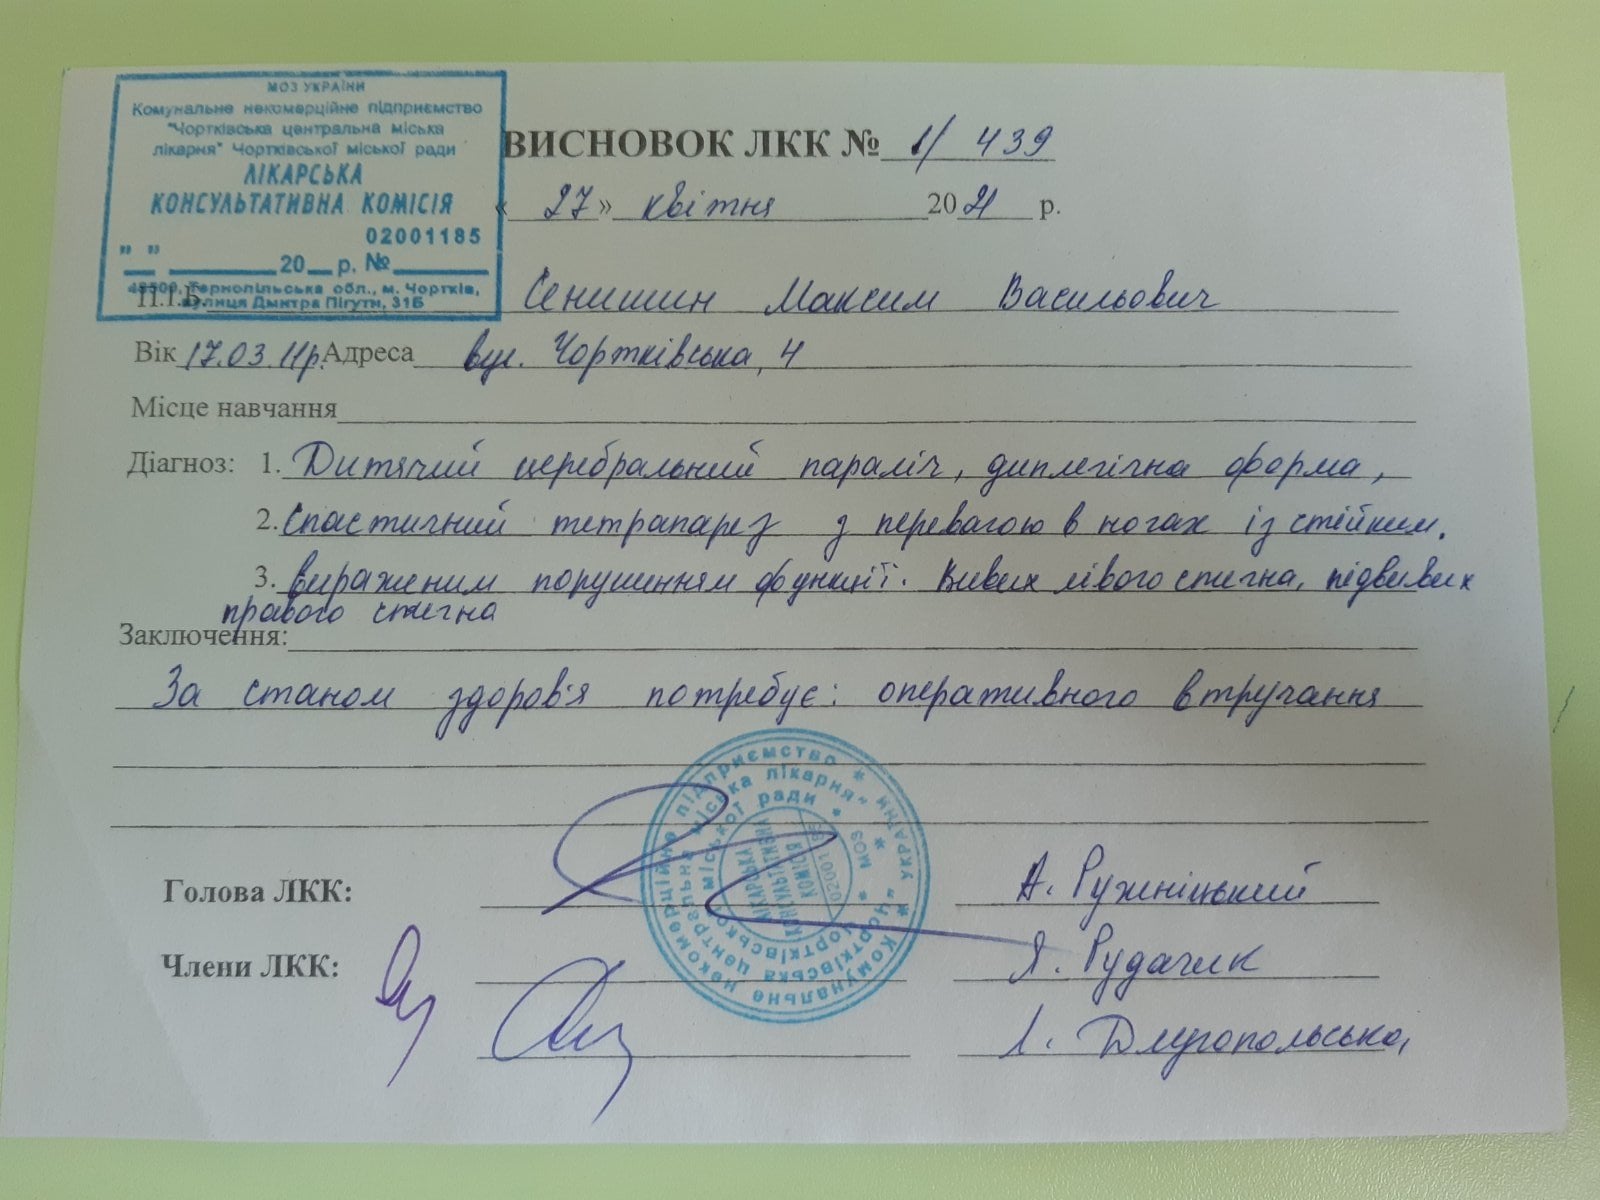 МОЗ УКРАЇНИ
Комунальне некомерційне підприємство
"Чортківська центральна міська
лікарня" Чортківської міської ради
ЛІКАРСЬКА
КОНСУЛЬТАТИВНА КОМІСІЯ
02001185
" " 20 р. №
48500, Тернопільська обл., м. Чортків,
вулиця Дмитра Пігути, 31Б
ВИСНОВОК ЛКК № 1/ 439
« 27 » квітня 2021 р.
П.І.Б. Сенишин Максим Васильович
Вік 17.03.11р. Адреса вул. Чортківська, 4
Місце навчання
Діагноз: 1. Дитячий церебральний параліч, диплегічна форма,
2. спастичний тетрапарез з перевагою в ногах із стійким.
3. вираженим порушенням функції. Вивих лівого стегна, підвивих
правого стегна
Заключення:
За станом здоров'я потребує: оперативного втручання
Голова ЛКК: А. Ружніцький
Члени ЛКК: Я. Рудачик
Л. Длугопольська,
* УКРАЇНИ * Комунальне некомерційне підприємство *
"Чортківська центральна міська лікарня"
* МОЗ * Чортківської міської ради *
ЛІКАРСЬКА
КОНСУЛЬТАТИВНА
КОМІСІЯ
02001185